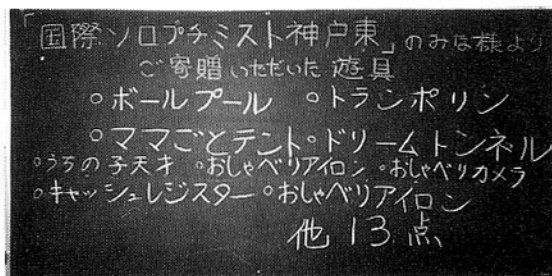 「国際ソロプチミスト神戸東」のみな様より
ご寄贈いただいた遊具
○ボールプール ○トランポリン
○ママごとテント○ドリームトンネル
○うちの子天才 ○おしゃべりアイロン ○おしゃべりカメラ
○キャッシュレジスター○おしゃべりアイロン
他13点